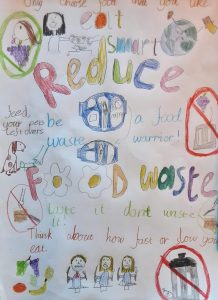 Only choose food that you like
t
smart
Reduce
feed your pets leftovers
be a food
waste warrior!
FOOD waste
taste it dont waste
it!
Think about how fast or slow you
eat.